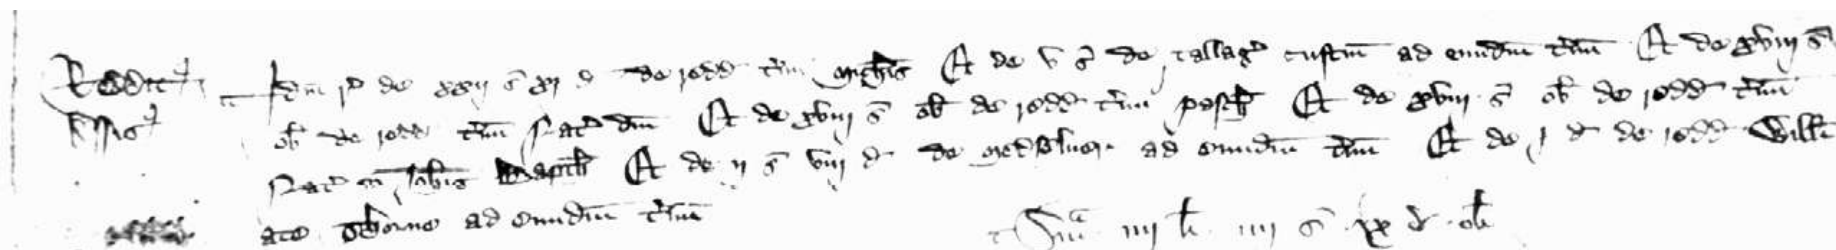 Reddit Idm r de xxij s xj d de redd tmi Michis Et de v s de tallag custum ad eundm tmm Et de xviij s
Assis ob de redd tmi Nat dni Et de xviij s ob de redd tmi pasch Et de xviij s ob de redd tmi
Nat sci Johis Bapt Et de ij s viij d de ad eundm tmm Et de j d de redd Willi
ate ad eundm tmm Sma iiij li iiij s ix d ob